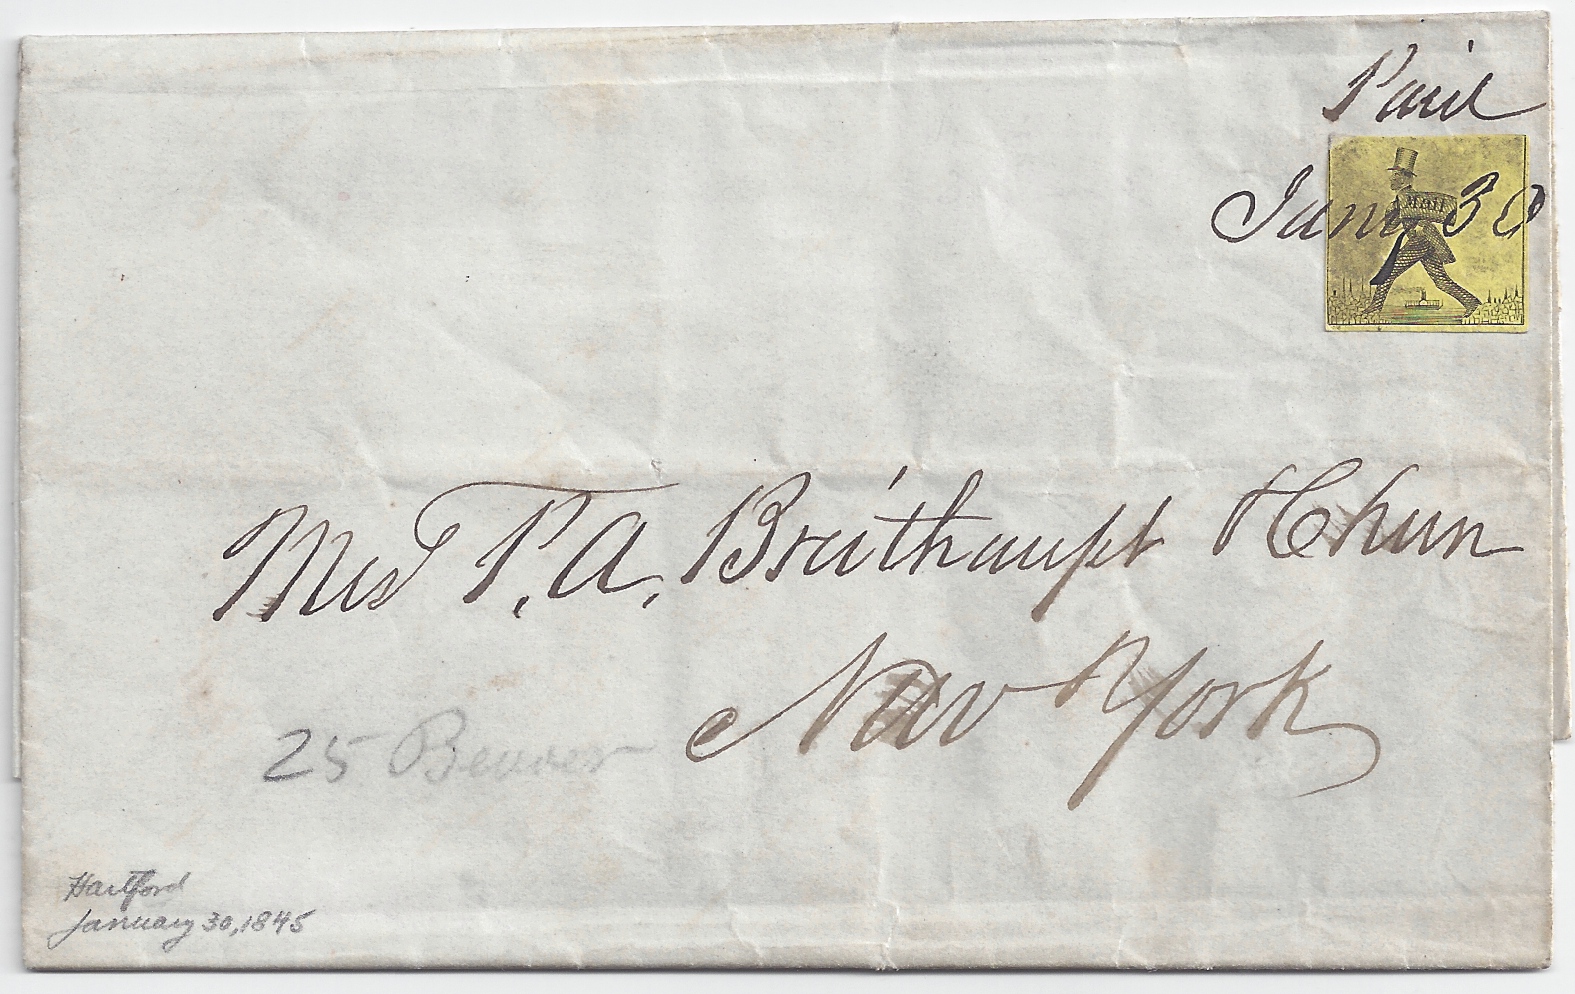 Paid
Jan 30
Mail
Mess P. A. Breithaupt &
New York
25 Beaver
Hartford
January 30, 1845